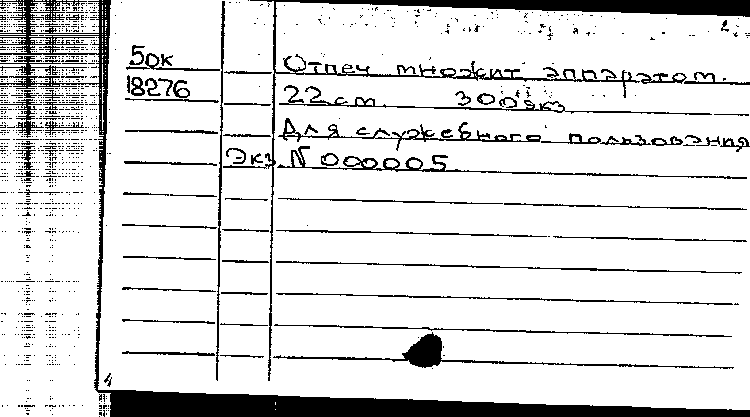 2
50к Отпеч множит аппаратом.
18276 22 см. 300 экз
Для служебного пользования
Экз N 000005
4